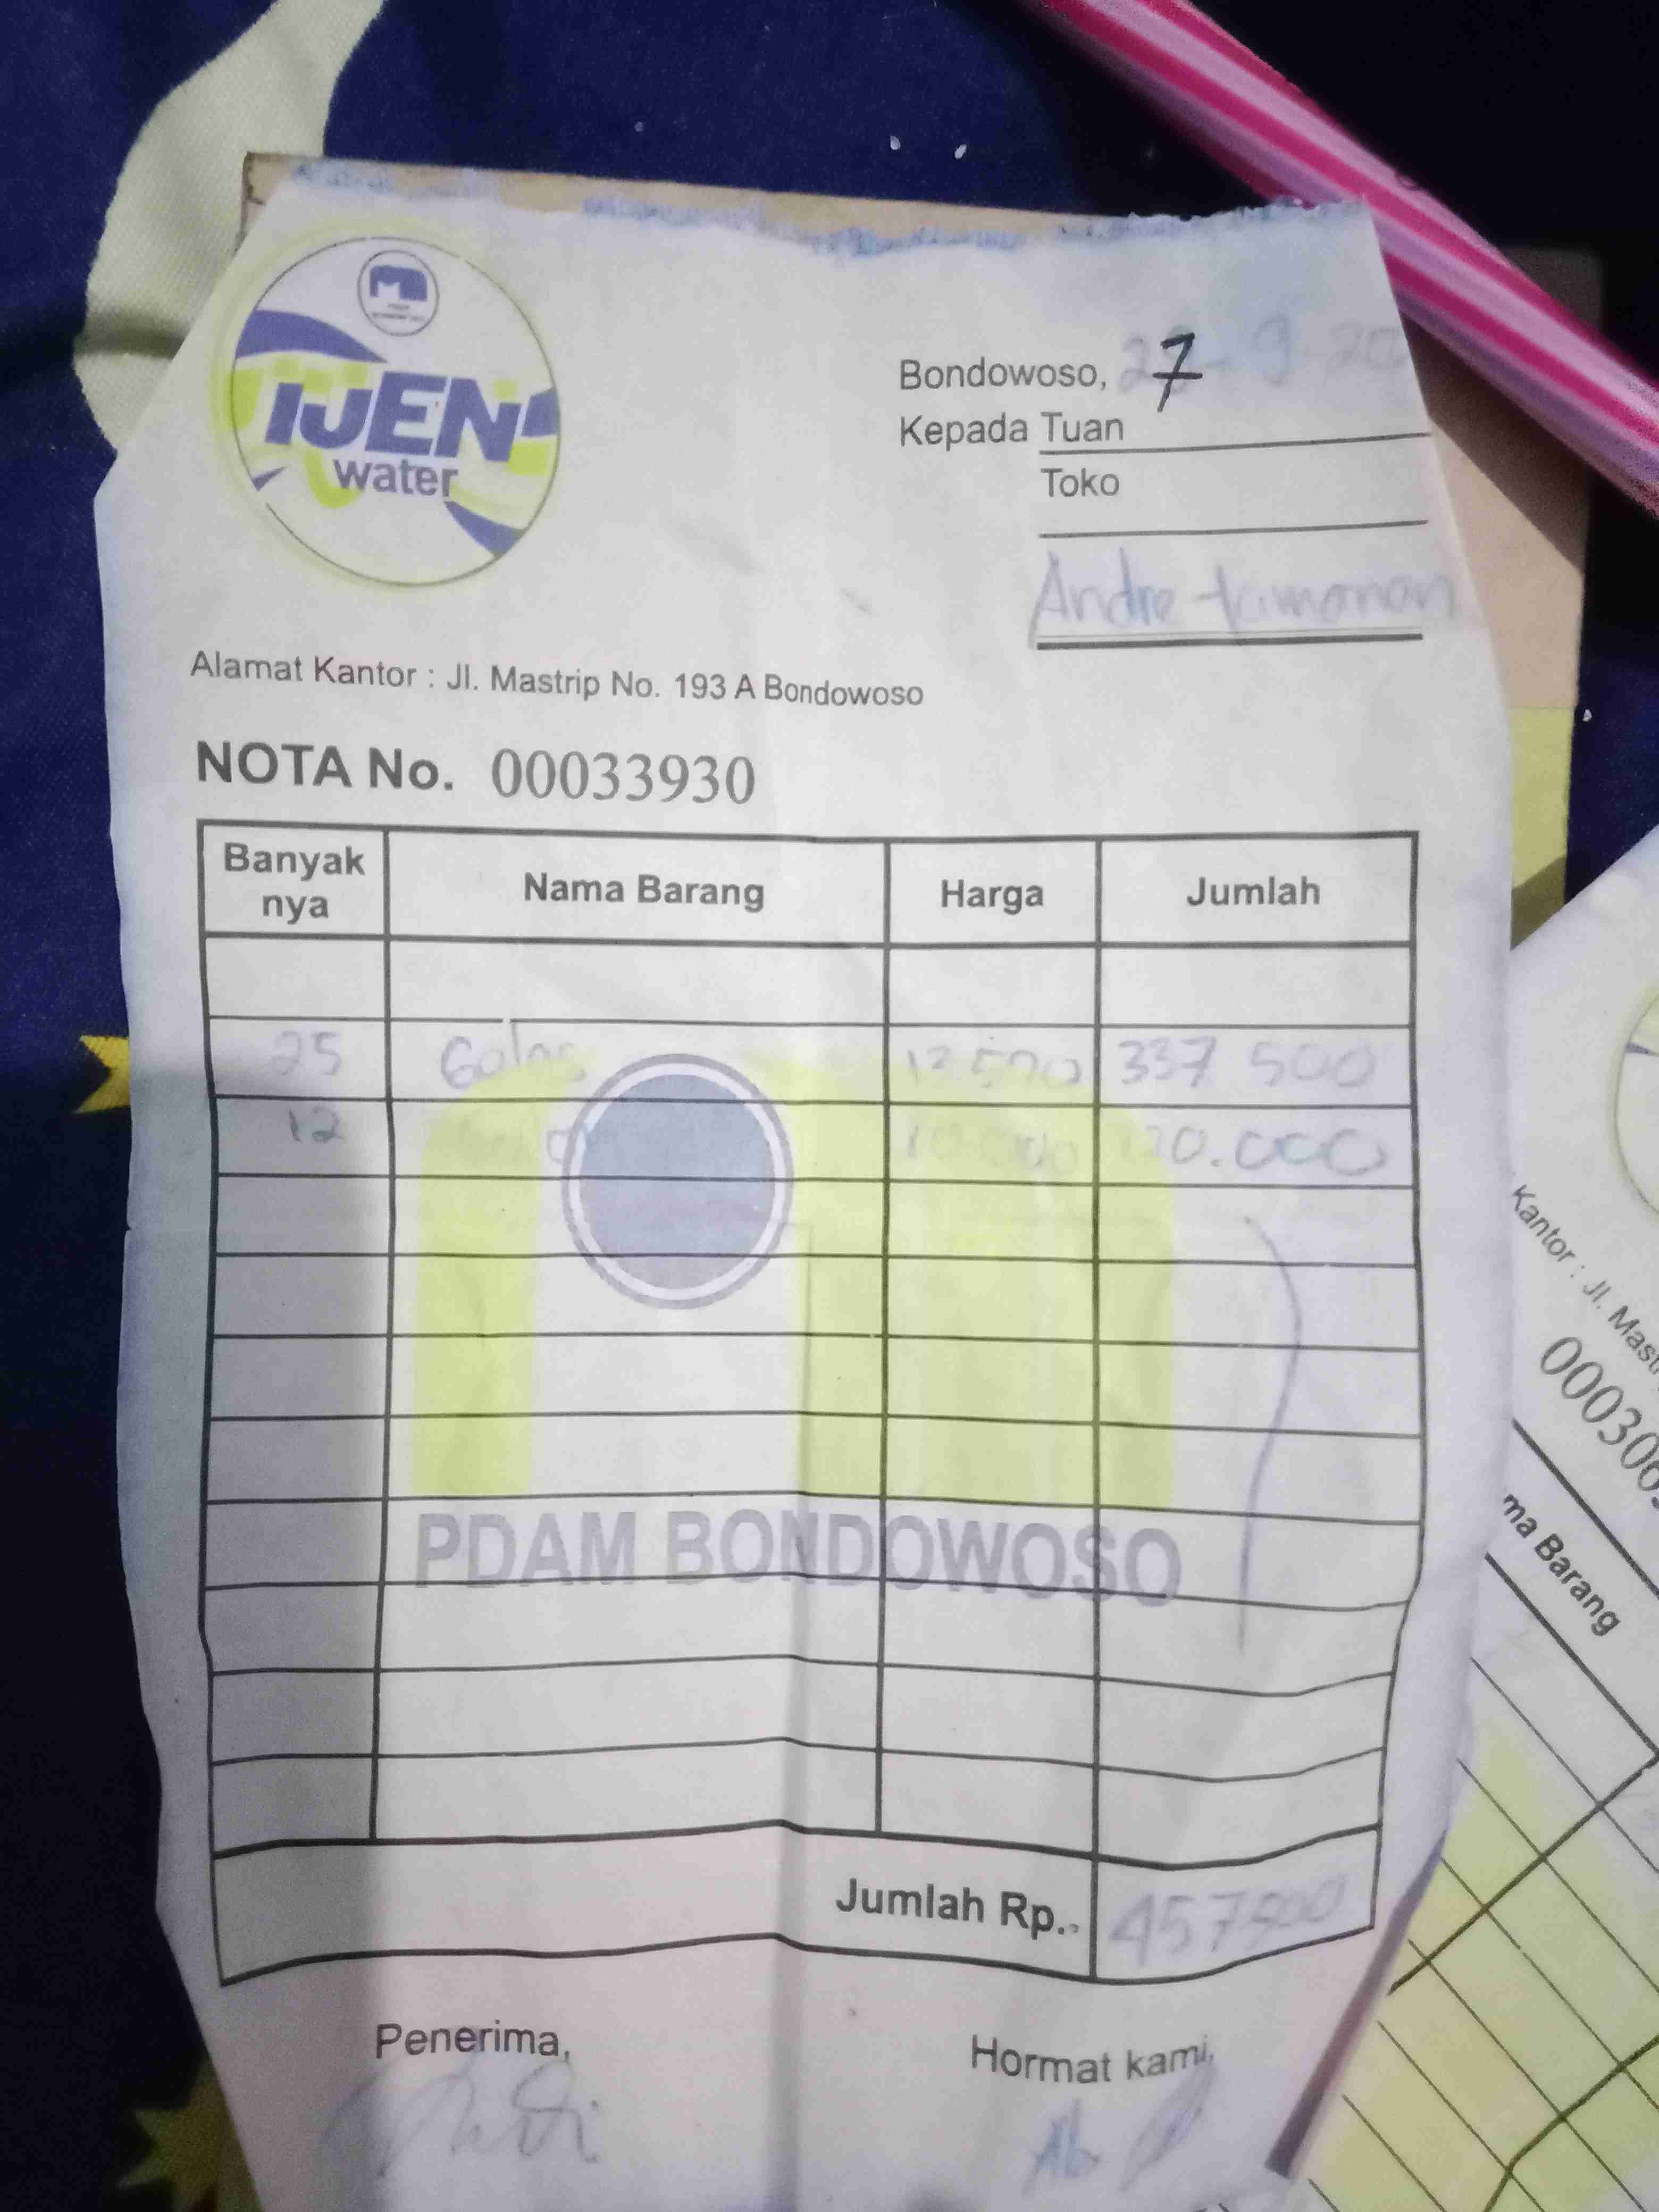 IJEN
water
Bondowoso, 27-9-20
Kepada Tuan
Toko
Andre
Alamat Kantor : Jl. Mastrip No. 193 A Bondowoso
NOTA No. 00033930
Banyak nya Nama Barang Harga Jumlah
25 Gelas 337 500
12
PDAM BONDOWOSO
Jumlah Rp.. 457500
Penerima,
Hormat kami,
Kantor : Jl. Mast
ma Barang